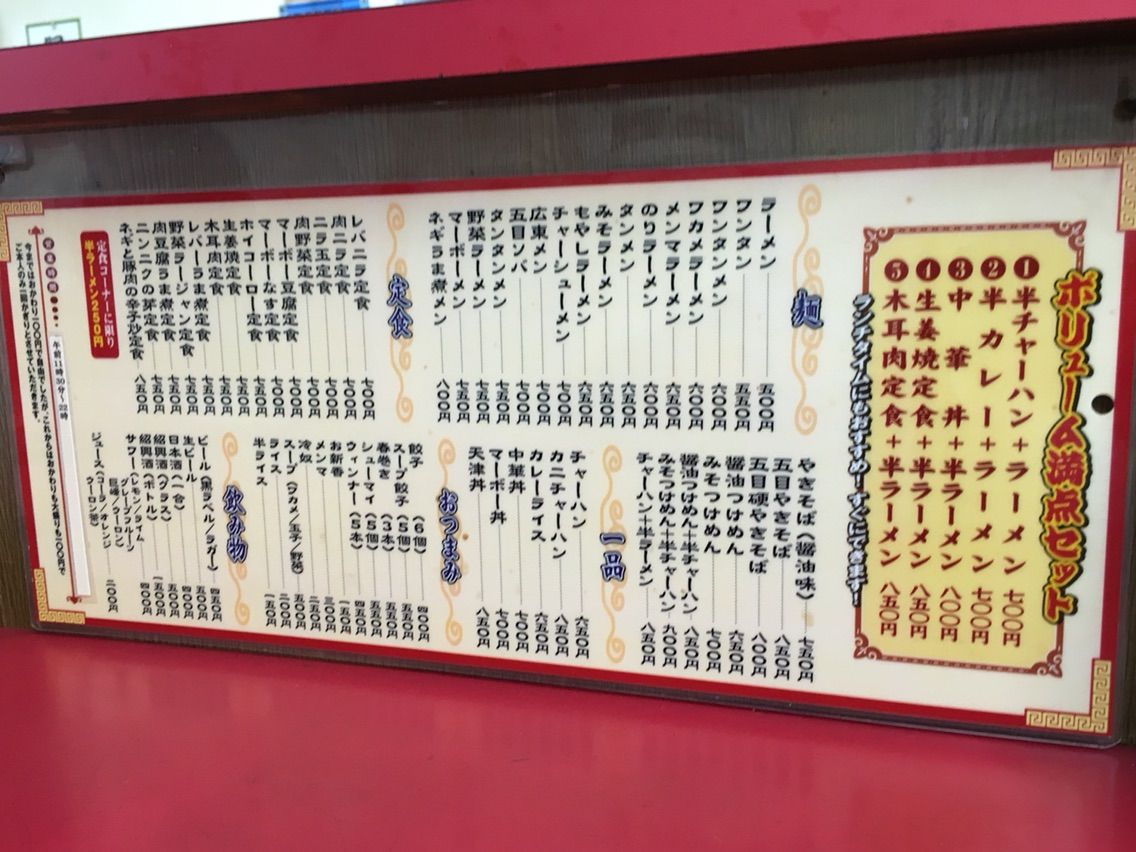 ボリューム満点セット
❶半チャーハン+ラーメン 七〇〇円
❷半カレー+ラーメン 七〇〇円
❸中華丼+半ラーメン 八〇〇円
❹生姜焼定食+半ラーメン 八五〇円
❺木耳肉定食+半ラーメン 八五〇円
ランチタイムにもおすすめ!すぐにできます!
麺
ラーメン 五〇〇円
ワンタン 五五〇円
ワンタンメン 六〇〇円
ワカメラーメン 六五〇円
メンマラーメン 六五〇円
のりラーメン 六〇〇円
タンメン 六五〇円
みそラーメン 六五〇円
もやしラーメン 六五〇円
チャーシューメン 七〇〇円
広東メン 七〇〇円
五目ソバ 七〇〇円
タンタンメン 七五〇円
野菜ラーメン 七五〇円
マーボーメン 七五〇円
ネギうま煮メン 八〇〇円
やきそば(醤油味) 七五〇円
五目やきそば 八五〇円
五目硬やきそば 八〇〇円
醤油つけめん 六五〇円
みそつけめん 七〇〇円
醤油つけめん+半チャーハン 八五〇円
みそつけめん+半チャーハン 九〇〇円
チャーハン+半ラーメン 八五〇円
一品
チャーハン 六五〇円
カニチャーハン 八五〇円
カレーライス 六五〇円
中華丼 七〇〇円
マーボー丼 七〇〇円
天津丼 八五〇円
定食
レバニラ定食 七〇〇円
肉ニラ定食 七〇〇円
ニラ玉定食 七〇〇円
肉野菜定食 七〇〇円
マーボー豆腐定食 七〇〇円
マーボーなす定食 七〇〇円
ホイコーロー定食 七〇〇円
生姜焼定食 七〇〇円
木耳肉定食 七〇〇円
レバーうま煮定食 七五〇円
野菜ラージャン定食 七五〇円
肉豆腐うま煮定食 七五〇円
ニンニクの芽定食 七五〇円
ネギと豚肉の辛子炒定食 八五〇円
定食コーナーに限り
半ラーメン250円
おつまみ
餃子(6個) 四〇〇円
スープ餃子(5個) 五五〇円
春巻き(3本) 五五〇円
シューマイ(5個) 五五〇円
ウィンナー(5本) 四五〇円
お新香 一五〇円
メンマ 三〇〇円
冷奴 二五〇円
スープ(ワカメ/玉子/野菜) 五〇〇円
ライス 二〇〇円
半ライス 一五〇円
飲み物
ビール(黒ラベル/ラガー) 四五〇円
生ビール 五〇〇円
日本酒(一合) 四〇〇円
紹興酒(グラス) 五〇〇円
紹興酒(ボトル) 一五〇〇円
サワー(レモン/ライム 四〇〇円
グレープフルーツ
巨峰/ウーロン)
ジュース(コーラ/オレンジ 二〇〇円
ウーロン茶)
営業時間●●●● 午前11時30分~22時
今まではおかわり一〇〇円で自由でしたが、これからはおかわりも大盛りも一〇〇円で
ご本人のみ一回かぎりとさせていただきます。